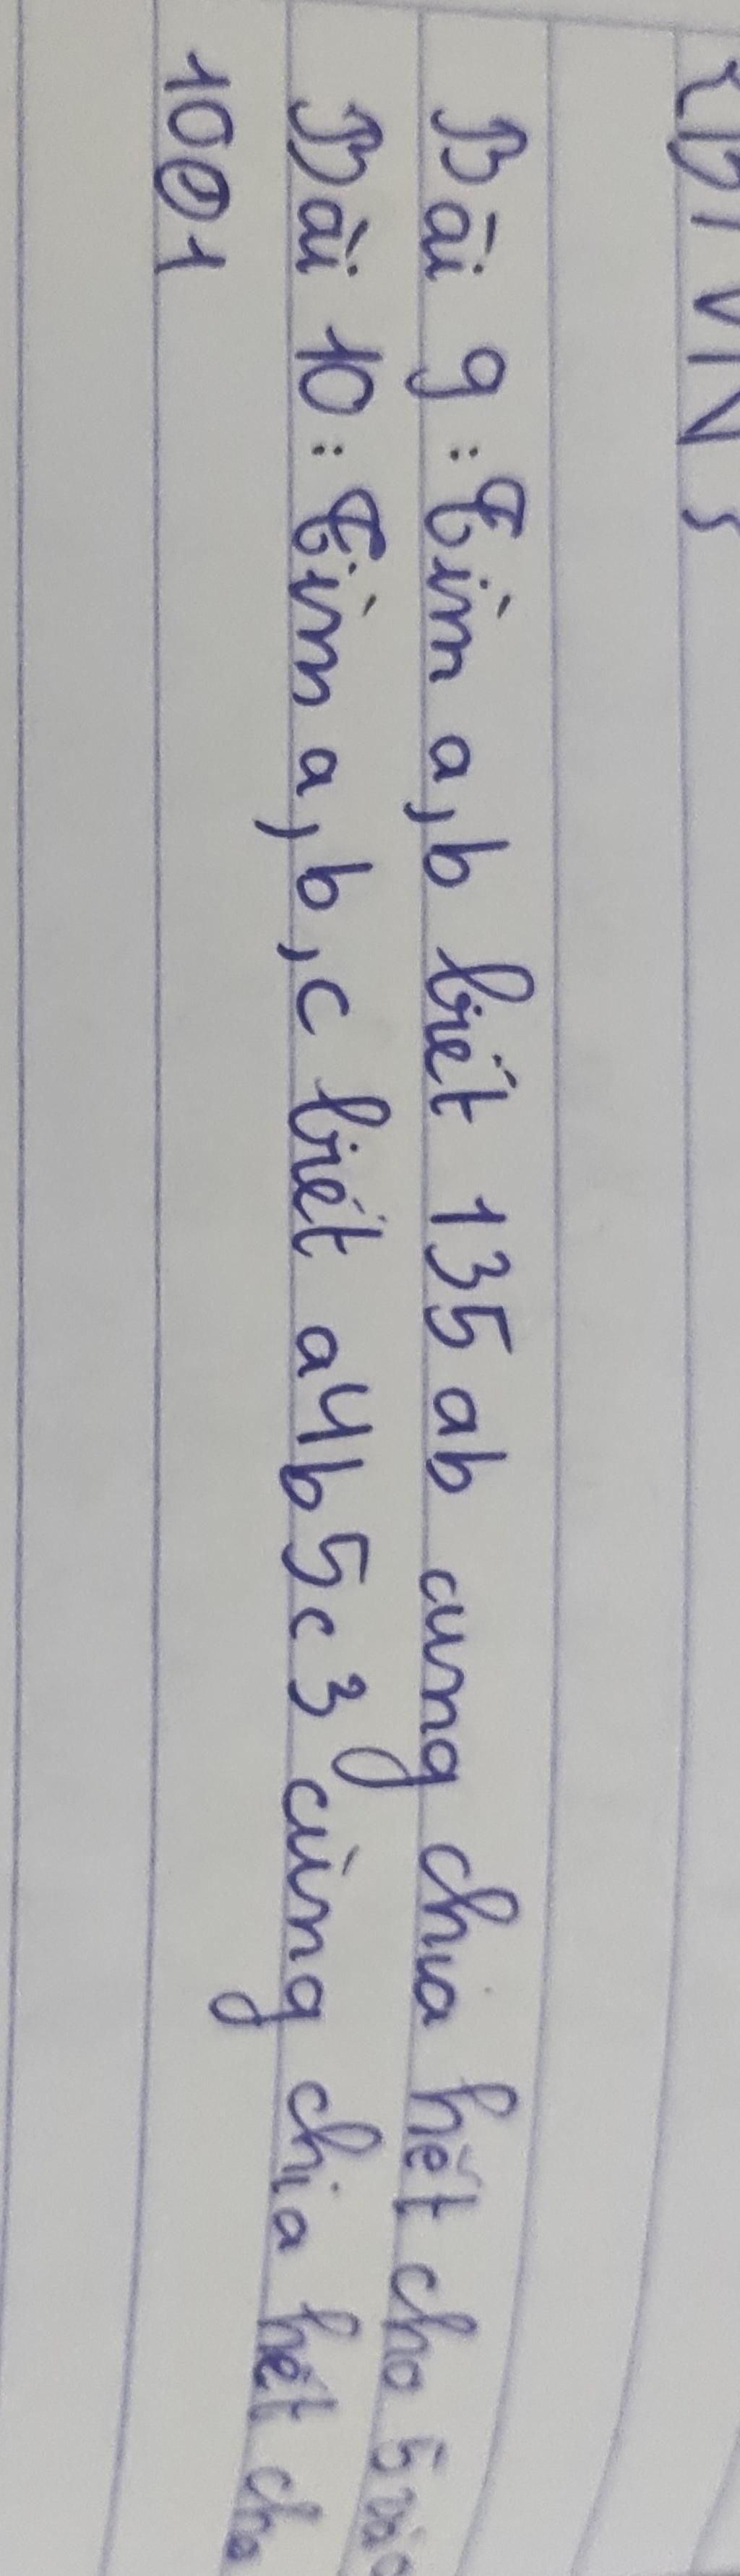 {BTVN}
Bài 9: Tìm a,b biết 135ab cung chia hết cho 5 và
Bài 10: Tìm a,b,c biết a4b5c3 cùng chia hết cho
1001